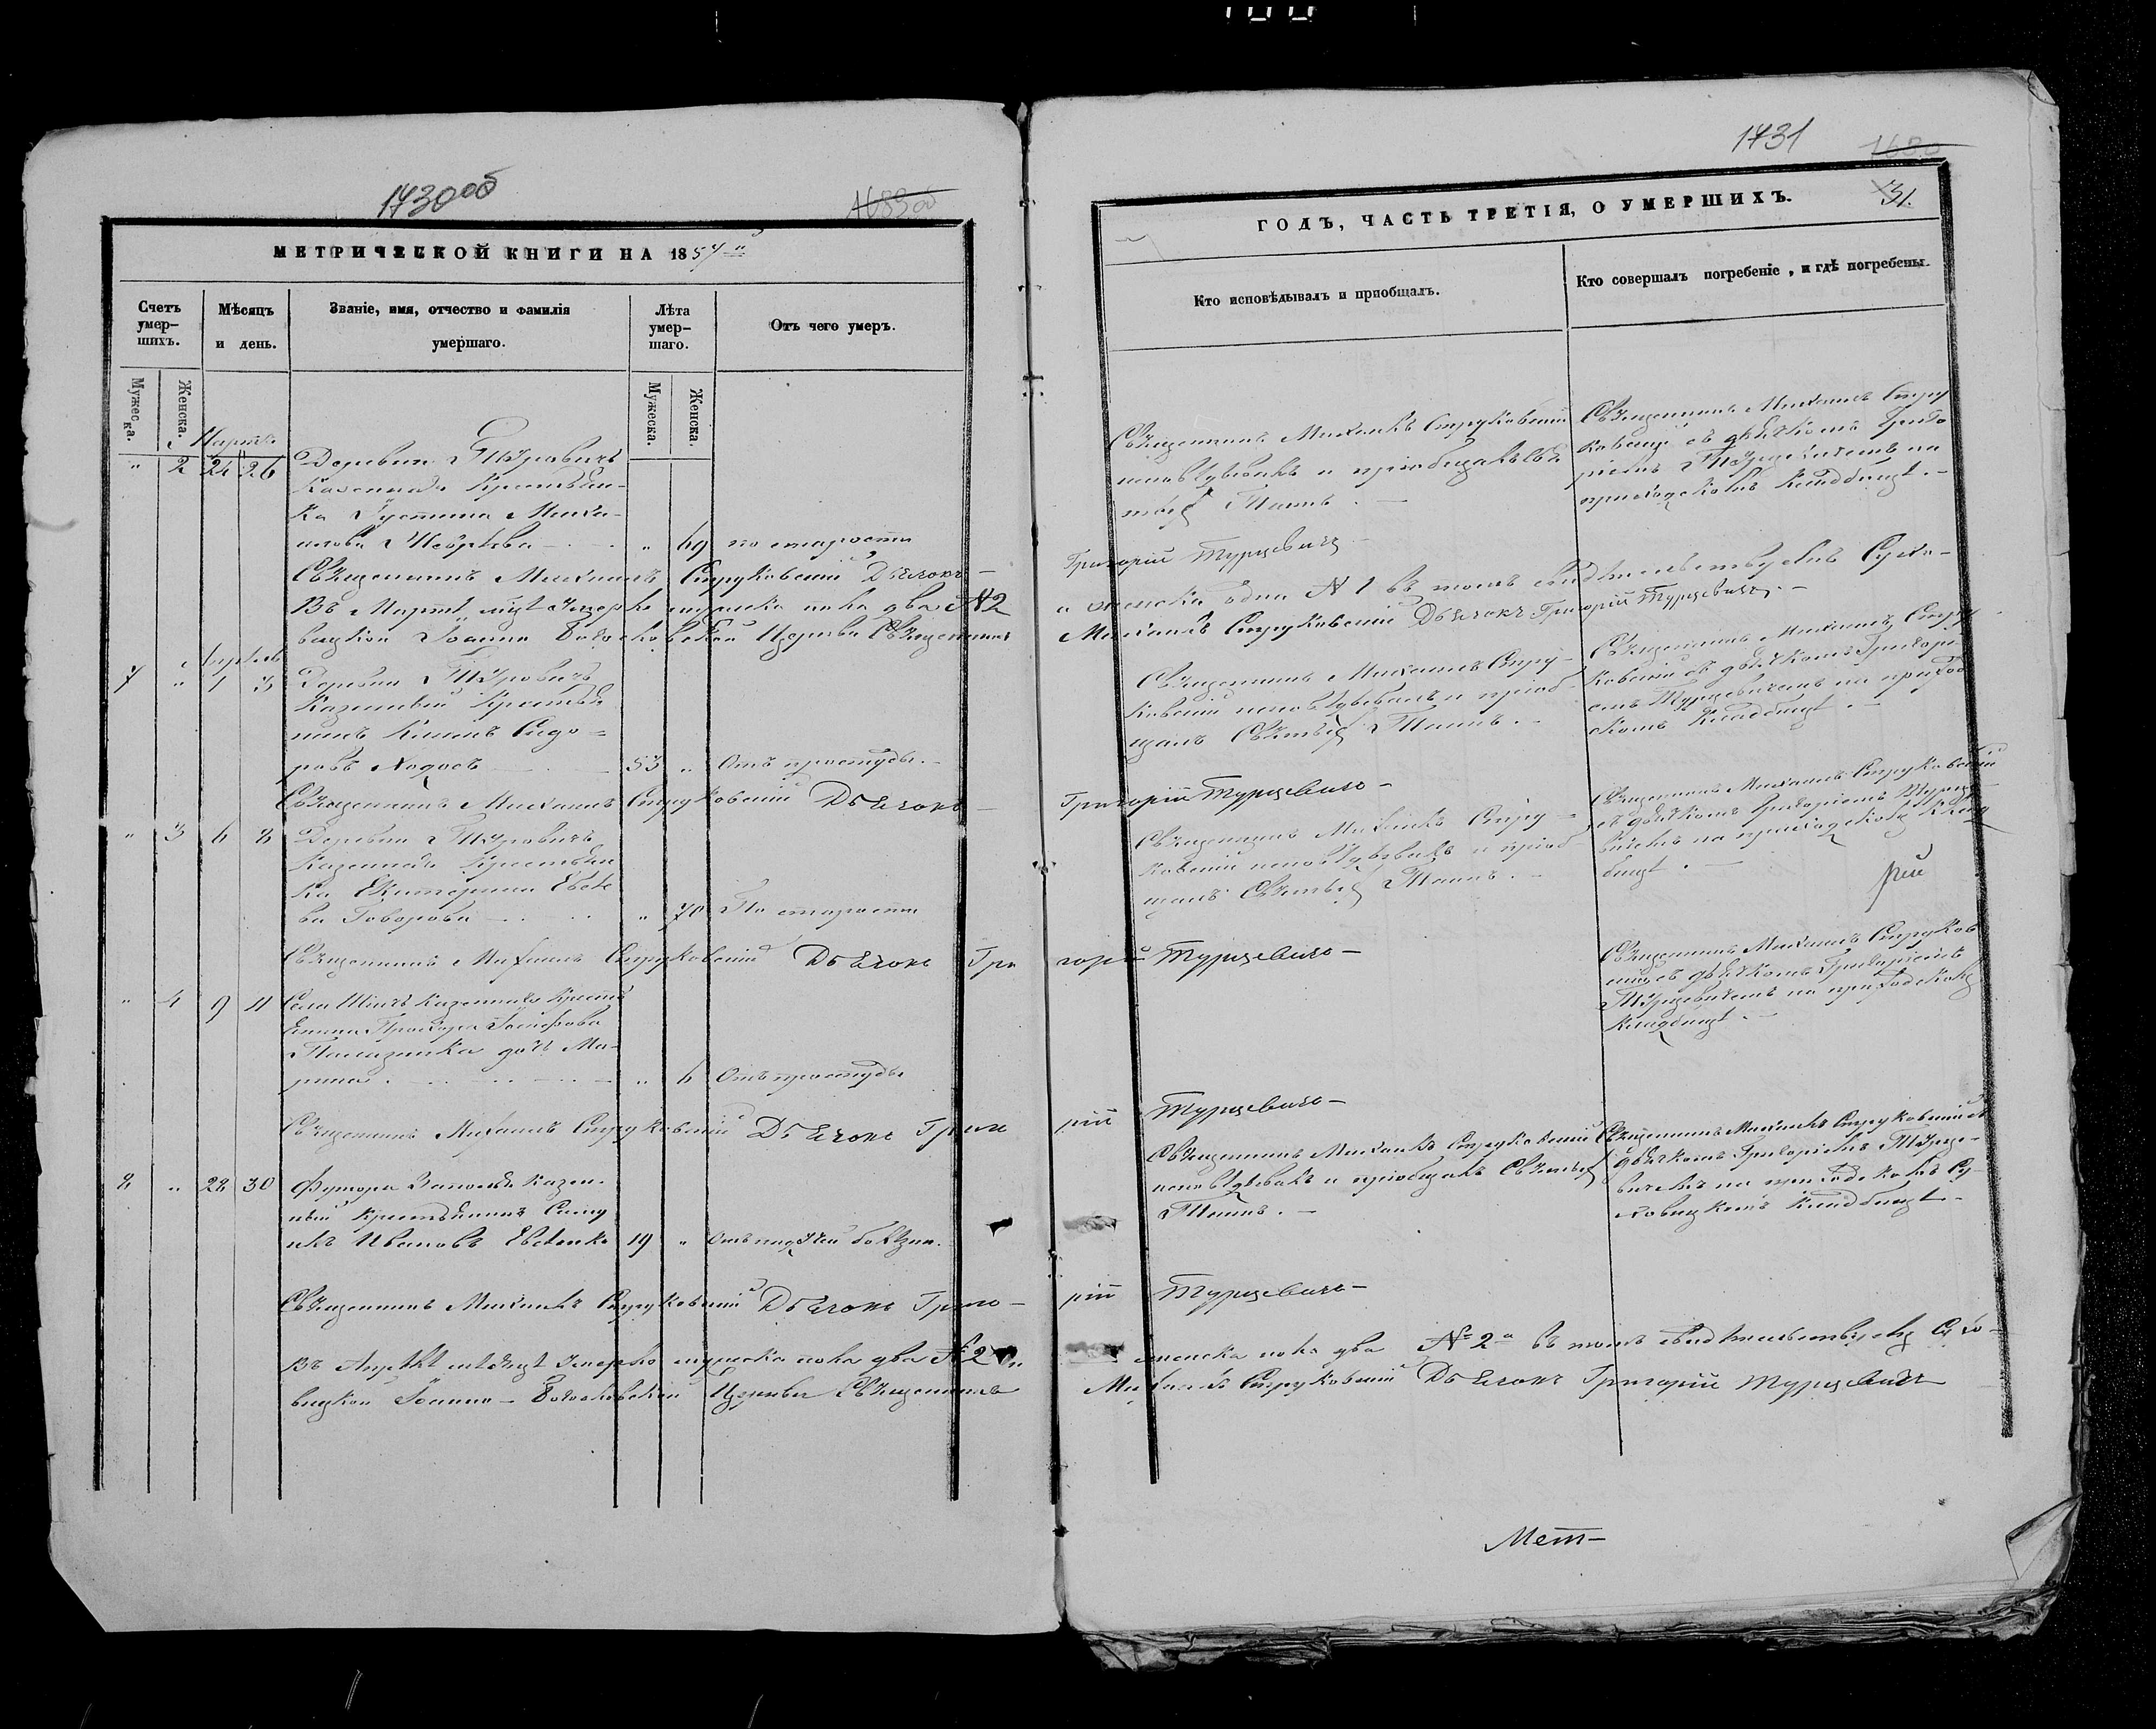 1730об
1683об
МЕТРИЧЕСКОЙ КНИГИ НА 1857й
Счетъ умер-шихъ.
Мѣсяцъ и день.
Званіе, имя, отчество и фамилія умершаго.
Лѣта умер-шаго.
Отъ чего умеръ.
Мужеска.
Женска.
Мужеска.
Женска.
Мартъ
" 2 24 26 Деревни Туровичъ
Казенная Крестьян-
ка Іустина Михаи-
лова — " 69 по старости
Священникъ Михаилъ Струковскій Дьячокъ —
Въ Мартѣ мцѣ Умерло мужеска пола два №2
вицкой Іоанно Богословской Церкви Священникъ
Апрѣль
7 " 1 3 Деревни Туровичъ
Казенный Крестья
нинъ Климъ Сидо=
ровъ Ходосъ — 53 " Отъ простуды. —
Священникъ Михаилъ Струковскій Дьячокъ —
" 3 6 8 Деревни Туровичъ
Казенная Крестьян
ка Екатерина Евсѣе
ва Говорова — " 70 По старости
Священникъ Михаилъ Струковскій Дьячокъ Гри
" 4 9 11 Села казеннаго Кресть
янина Іосифова
дочь Ма-
рина. — " 6 Отъ простуды
Священникъ Михаилъ Струковскій Дьячокъ Григо
8 " 28 30 Футора Заполья казен.
ный крестьянинъ
Ивановъ Евсѣенко 19 " Отъ падучей болѣзни.
Священникъ Михаилъ Струковскій Дьячокъ Григо —
Въ Апрѣлѣ мѣсяцѣ Умерло мужеска пола два №2 и
вицкой Іоанно — Богословской Церкви Священникъ
1731
1680
31.
ГОДЪ, ЧАСТЬ ТРЕТІЯ, О УМЕРШИХЪ.
Кто исповѣдывалъ и пріобщалъ.
Кто совершалъ погребеніе, и гдѣ погребены.
Священникъ Михаилъ Струковскій
исповѣдывалъ и пріобщалъ Свя
тыхъ Таинъ. —
Священникъ Михаилъ Стру
ковскій съ дьячкомъ Григо
ріемъ Турцевичемъ на
приходскомъ кладбищѣ. —
Григорій Турцевичъ
и женска одна №1 въ томъ свидѣтельствуемъ Сухо-
Михаилъ Струковскій Дьячокъ Григорій Турцевичъ. —
Священникъ Михаилъ Стру-
ковскій исповѣдывалъ и пріоб-
щалъ Святыхъ Таинъ. —
Священникъ Михаилъ Стру
ковскій съ дьячкомъ Григорі
емъ Турцевичемъ на приход
скомъ кладбищѣ. —
Григорій Турцевичъ —
Священникъ Михаилъ Стру=
ковскій исповѣдывалъ и пріоб-
щалъ Святыхъ Таинъ. —
Священникъ Михаилъ Струковскій
съ дьячкомъ Григоріемъ Турце-
вичемъ на приходскомъ клад
бищѣ. —
рій
горій Турцевичъ —
Священникъ Михаилъ Струков
скій съ дьячкомъ Григоріемъ
Турцевичемъ на приходскомъ
кладбищѣ. —
рій Турцевичъ —
Священникъ Михаилъ Струковскій
исповѣдывалъ и пріобщалъ Святыхъ
Таинъ. —
Священникъ Михаилъ Струковскій съ
дьячкомъ Григоріемъ Турце-
вичемъ на приходскомъ Су-
ховицкомъ кладбищѣ —
рій Турцевичъ —
женска пола два №2а въ томъ свидѣтельствуемъ Сухо-
Михаилъ Струковскій Дьячокъ Григорій Турцевичъ
Мет —